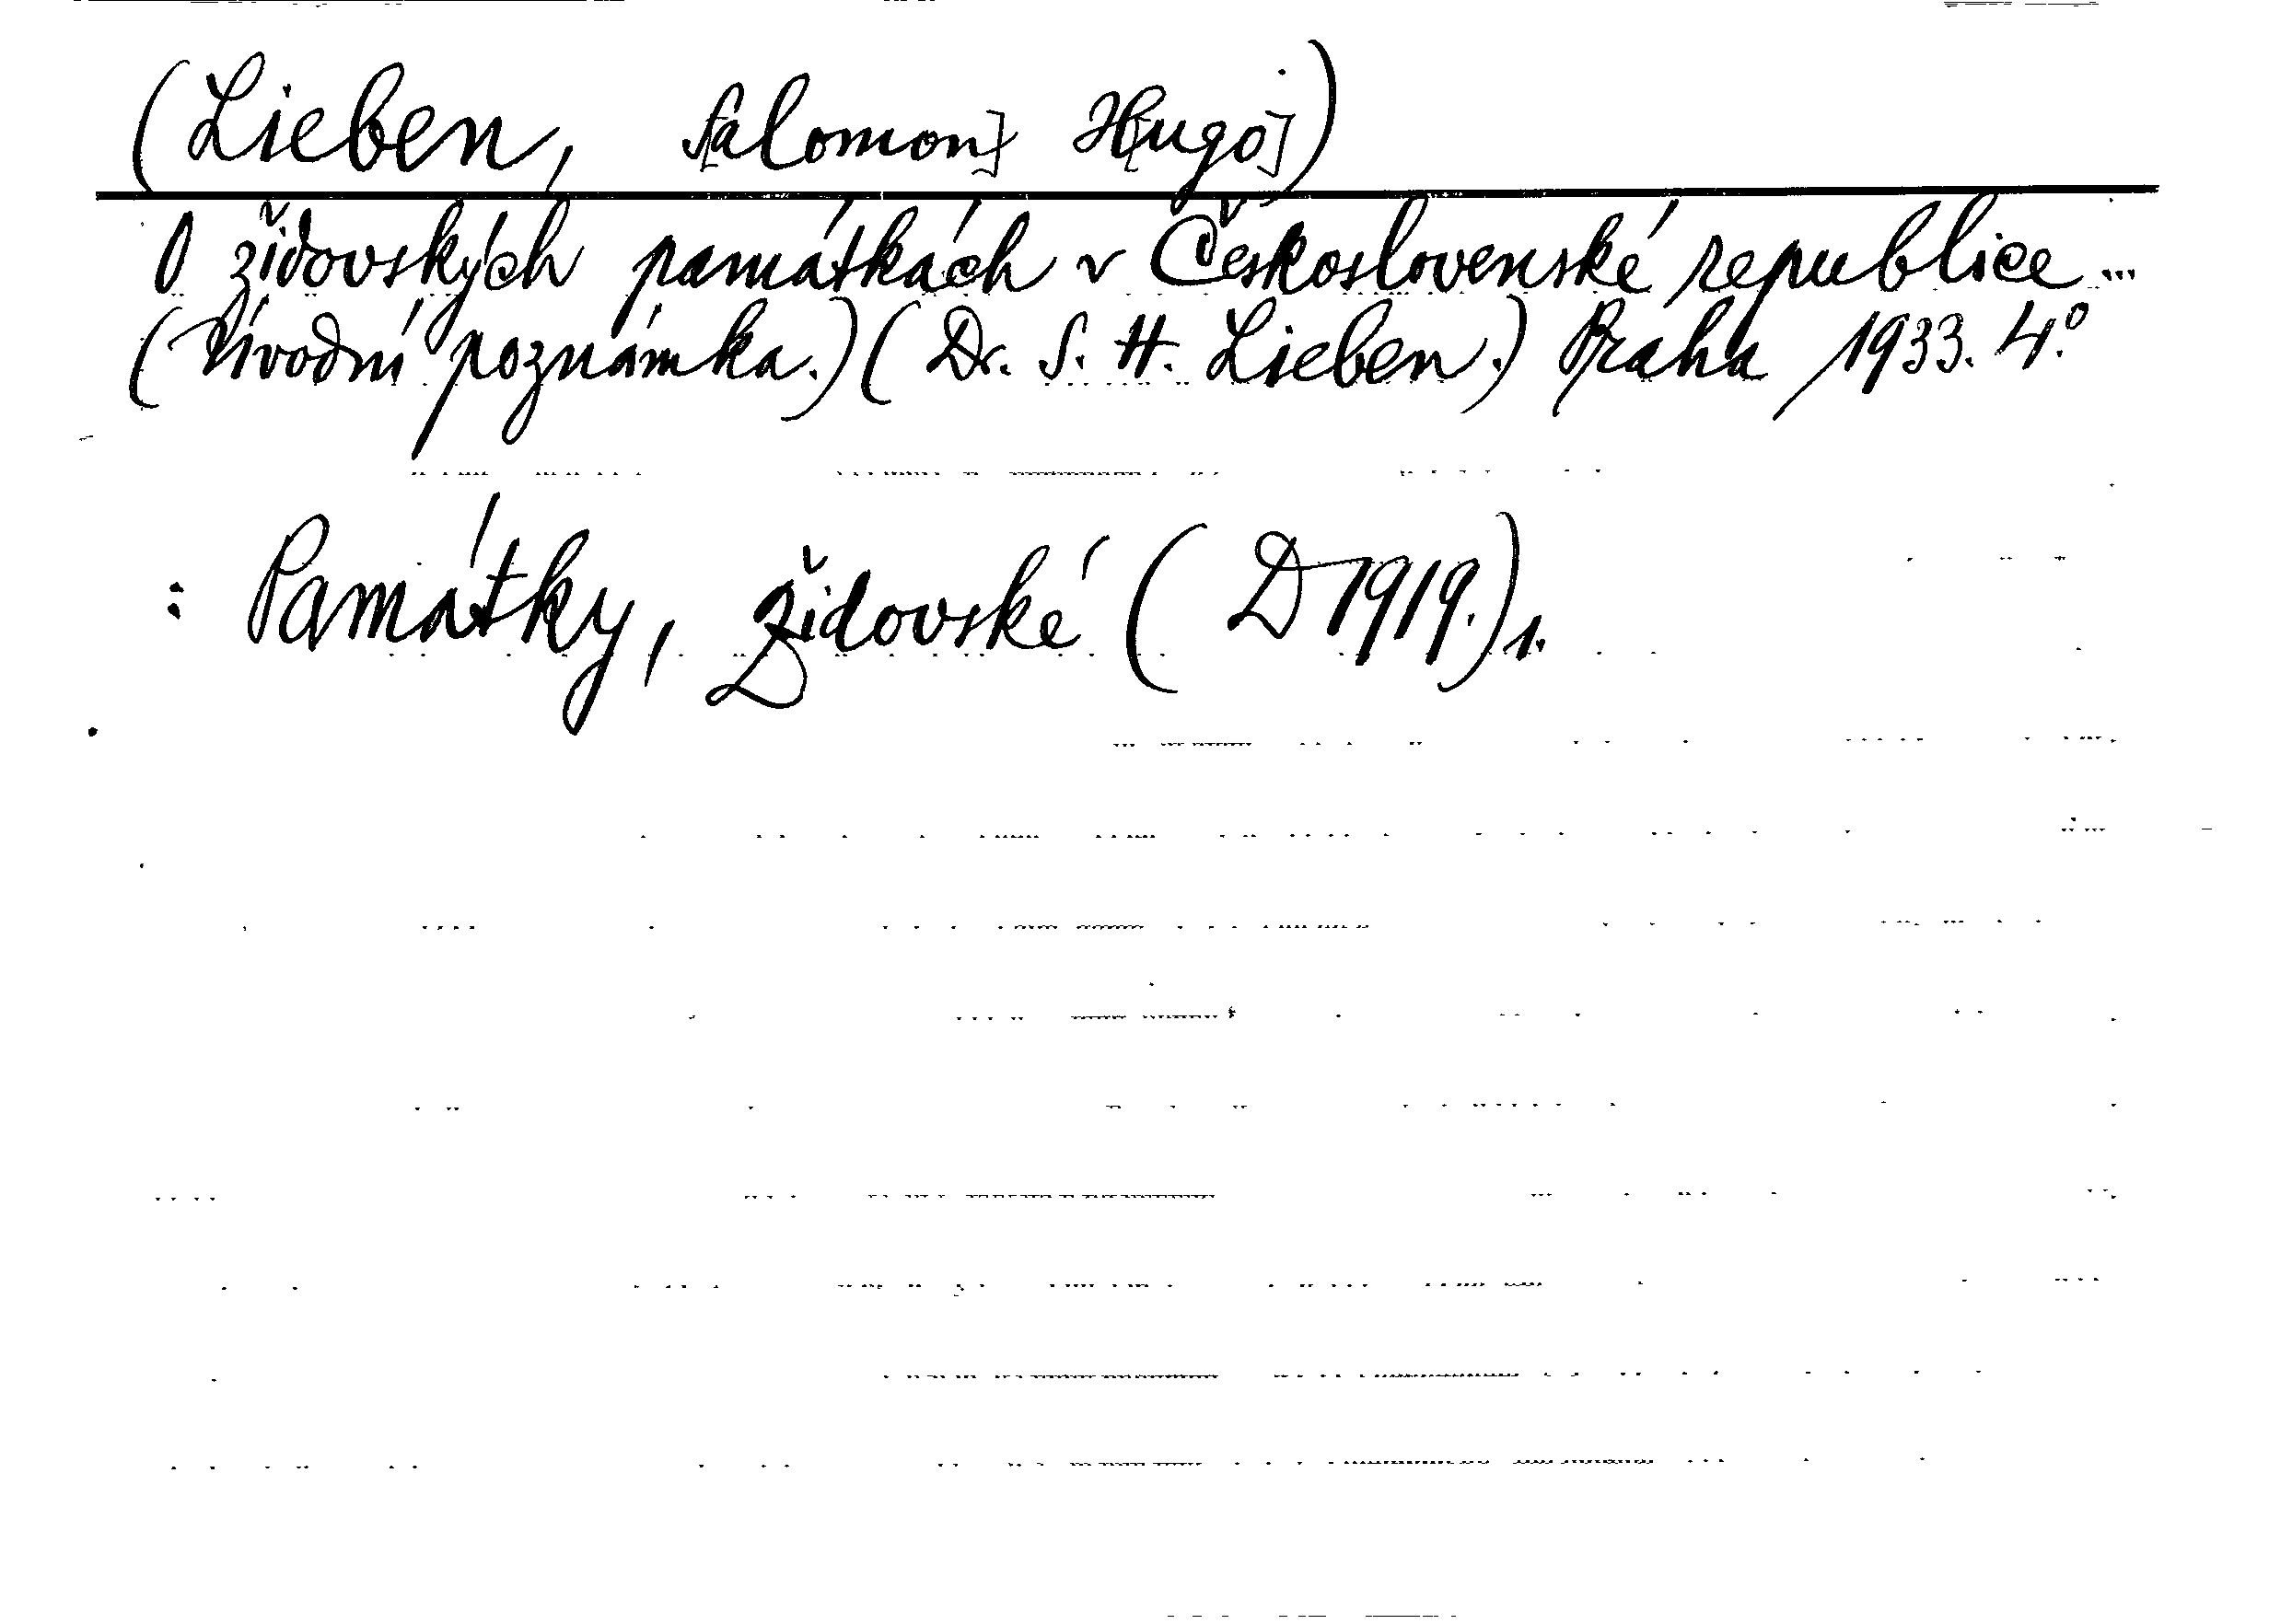 (Lieben, S[alomon] H[ugo])
O židovských památkách v Československé republice ...
(Úvodní poznámka.) (Dr. S. H. Lieben.) Praha 1933. 4.°
: Památky, židovské (D 1919.) 1.